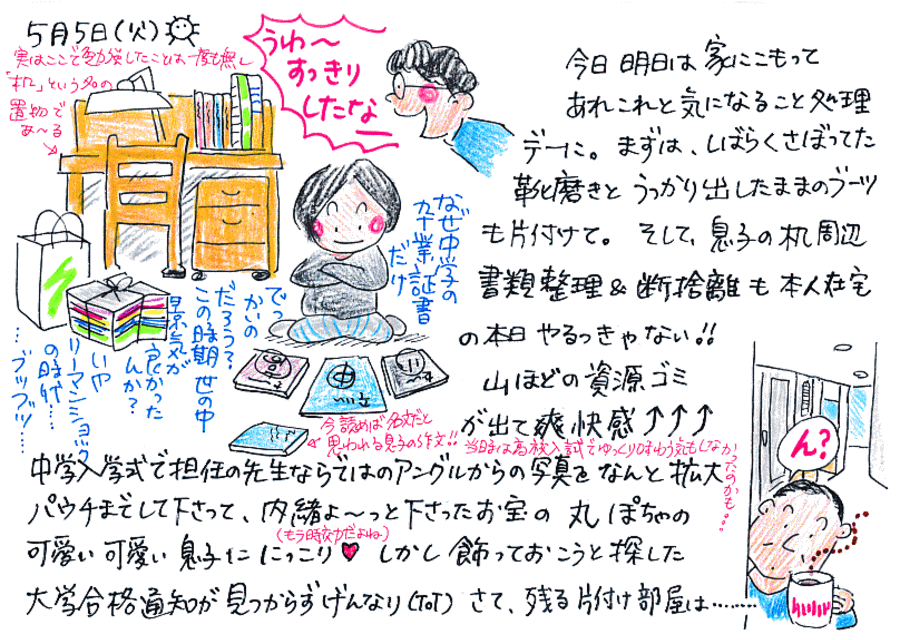 5月5日(火)
実はここで勉強したことは一度も無し
「机」という名の
置物で
あ〜る
うわ〜
すっきり
したな
今日 明日は 家にこもって
あれこれと気になること処理
デーに。まずは、しばらくさぼってた
靴磨きと うっかり出したままのブーツ
も片付けて。そして、息子の机周辺
書類整理&断捨離も 本人在宅
の本日 やるっきゃない!!
山ほどの資源ゴミ
が出て爽快感↑↑↑
なぜ中学の
卒業証書
だけ
でっ
かいの
だろう?
この時期世の中
景気が
良かった
んか?
いや
リーマンショック
の時代…
…ブツブツ…
中
今読めば名文だと
思われる息子の作文!!
当時は高校入試でゆっくり味わう気もしなかったのかも…
ん?
中学入学式で担任の先生ならではのアングルからの写真をなんと拡大
パウチまでして下さって、内緒よ〜っと下さったお宝の 丸ぽちゃの
(もう時効だよね)
可愛い 可愛い 息子に にっこり♥ しかし 飾っておこうと探した
大学合格通知が見つからずげんなり(ToT) さて、残る片付け部屋は………